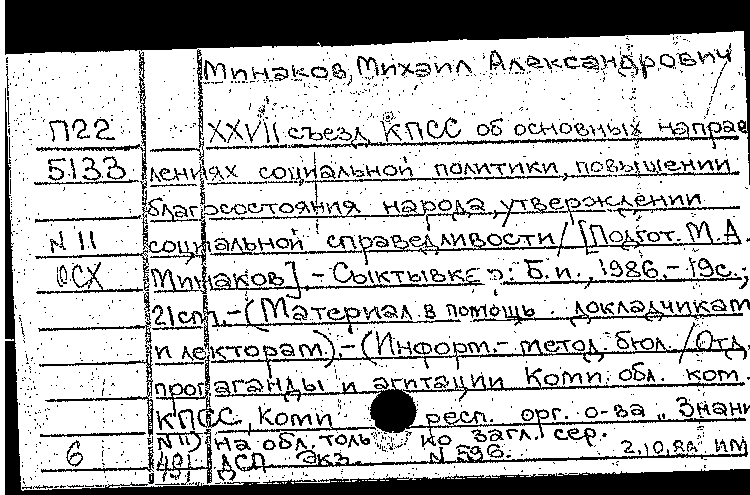 Минаков, Михаил Александрович
П22 XXVII съезд КПСС об основных направ
5133 лениях социальной политики, повышении
благосостояния народа, утверждении
N 11 социальной справедливости / [Подгот. М.А.
ОСХ Минаков]. - Сыктывкар: Б.и., 1986. - 19с.;
21cm. - (Материал в помощь докладчикам
и лекторам). - (Информ.-метод. бюл. / Отд.
пропаганды и агитации Коми обл. ком.
КПСС, Коми респ. орг. о-ва "Знани
N 11) На обл. только загл. сер.
6 ДСП Экз. N 596. ИМ